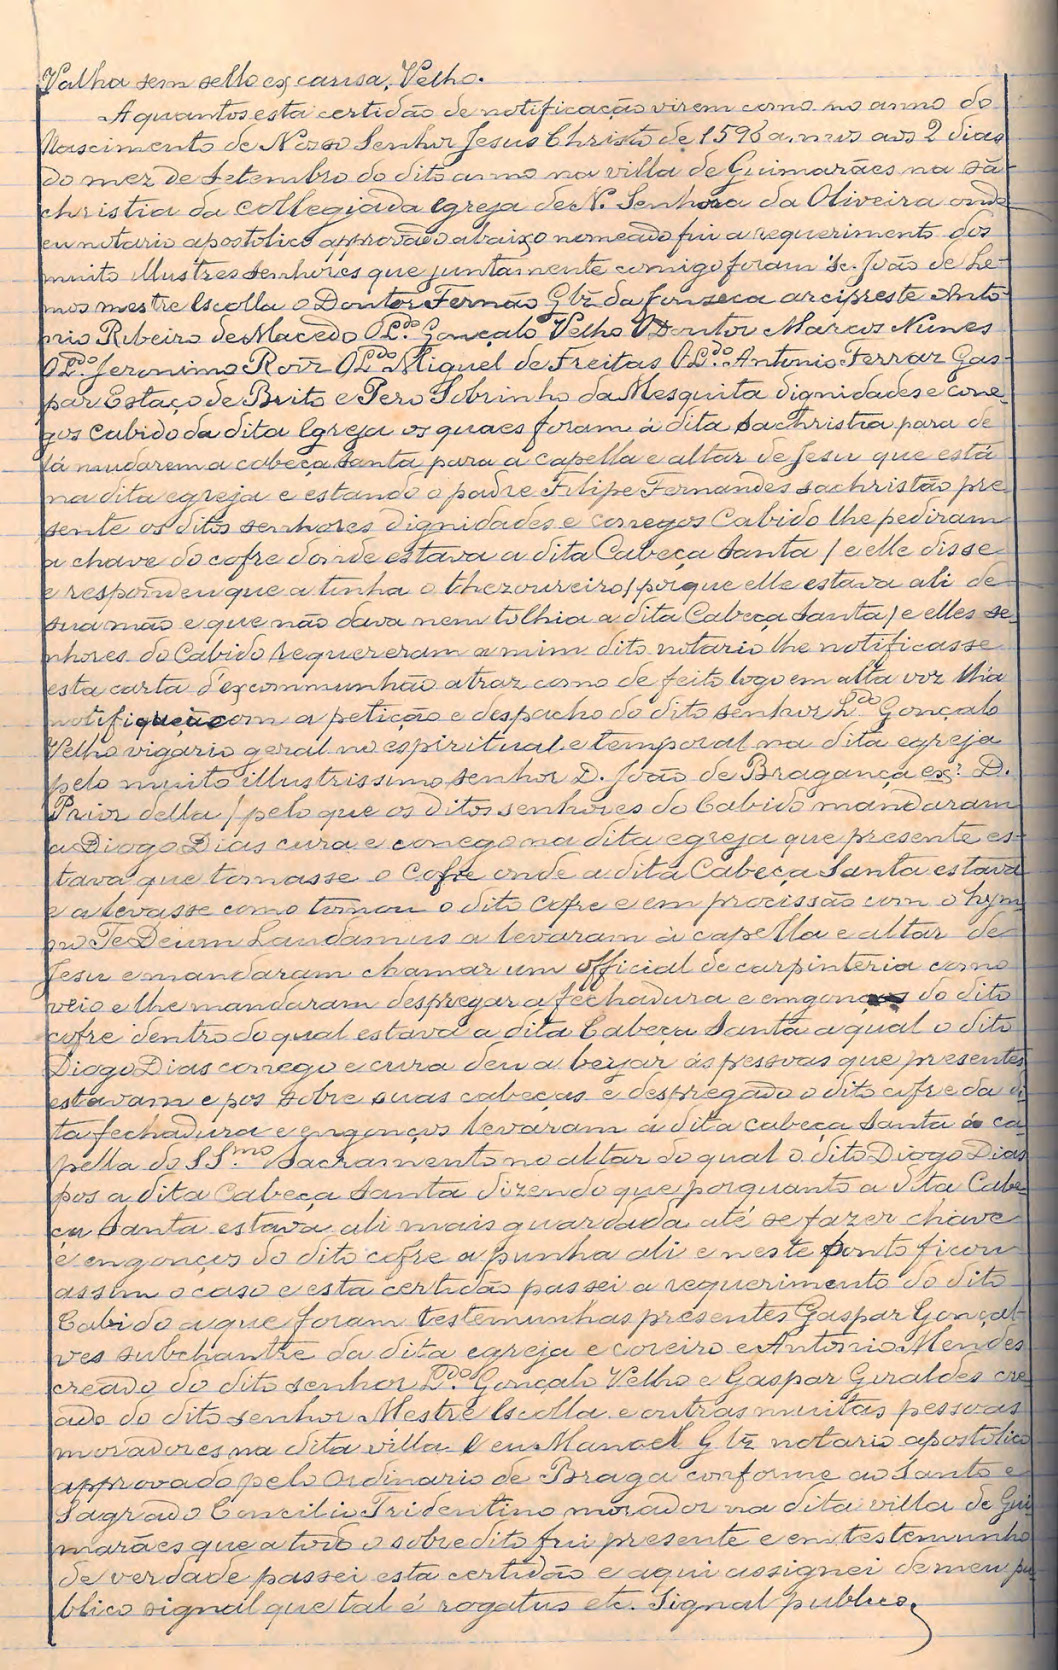 Valha sem sello ex causa, Velho.
A quantos esta certidão de notificação virem como no anno do
Nascimento de Nosso Senhor Jesus Christo de 1596 annos aos 2 dias
do mez de setembro do dito anno na villa de Guimarães na sã-
christia da collegiada egreja de N. Senhora da Oliveira onde
eu notario apostolico approvado abaixo nomeado fui a requerimento dos
muito illustres senhores que juntamente comigo foram sc. João de Le-
mos mestre Escolla o Doutor Fernão Glz da fonseca arcipreste Anto-
nio Ribeiro de Macedo O Ldo Gonçalo Velho O Doutor Marcos Nunes
O Ldo Jeronimo Roiz O Ldo Miguel de Freitas O Ldo Antonio Ferraz Gas-
par Estaço de Brito e Pero Sobrinho da Mesquita dignidades e cone-
gos Cabido da dita Egreja os quaes foram á dita Sachristia para de
lá mudarem a cabeça santa para a capella e altar de Jesu que está
na dita egreja e estando o padre Filipe Fernandes sachristão pre
sente os ditos senhores dignidades e conegos Cabido lhe pediram
a chave do cofre donde estava a dita Cabeça Santa / e elle disse
e respondeu que a tinha o thezoureiro / porque elle estava ali de
sua mão e que não dava nem tolhia a dita Cabeça Santa / e elles se-
nhores do Cabido requereram a mim dito notario lhe notificasse
esta carta d'excommunhão atraz como de feito logo em alta voz lh'a
notifiquei com a petição e despacho do dito senhor Ldo Gonçalo
Velho vigario geral no espiritual e temporal na dita egreja
pelo muito illustrissimo senhor D. João de Bragança ex? D.
Prior della / pelo que os ditos senhores do Cabido mandaram
a Diogo Dias cura e conego na dita egreja que presente es-
tava que tomasse o Cofre onde a dita Cabeça Santa estava
e a levasse como tomou o dito cofre e em procissão com o hym
no Te Deum Laudamus a levaram á capella e altar de
Jesu e mandaram chamar um official de carpinteria como
veio e lhe mandaram despregar a fechadura e engonços do dito
cofre dentro do qual estava a dita Cabeça Santa a qual o dito
Diogo Dias conego e cura deu a beyar ás pessoas que presentes
estavam e pos sobre suas cabeças e despregado o dito cofre da di
ta fechadura e engonços levaram á dita cabeça Santa á ca
pella do SSmo Sacramento no altar do qual o dito Diogo Dias
pos a dita Cabeça Santa dizendo que porquanto a dita Cabe-
ça Santa estava ali mais guardada até se fazer chave
e engonços do dito cofre a punha ali e neste ponto ficou
assim o caso e esta certidão passei a requerimento do dito
Cabido a que foram testemunhas presentes Gaspar Gonçal-
ves subchantre da dita egreja e coreiro e Antonio Mendes
creado do dito senhor Ldo Gonçalo Velho e Gaspar Geraldes cre-
ado do dito senhor Mestre Escolla e outras muitas pessoas
moradores na dita villa. E eu Manoel Glz notario apostolico
approvado pelo Ordinario de Braga conforme ao Santo e
Sagrado Concilio Tridentino morador na dita villa de Gui-
marães que a todo o sobredito fui presente e em testemunho
de verdade passei esta certidão e aqui assignei de meu pu
blico signal que tal é rogatus etc. Signal publico.